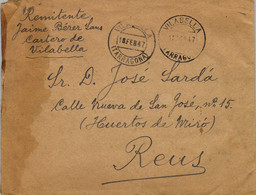 Remitente
Jaime Bérez Sans
Cartero de
Vilabella
VILABELLA
18 FEB 47
(TARRAGONA)
VILABELLA
47
TARRAGO
Sr. D. José Sardá
Calle Nueva de San José, nº 15
(Huertos de Miró)
Reus